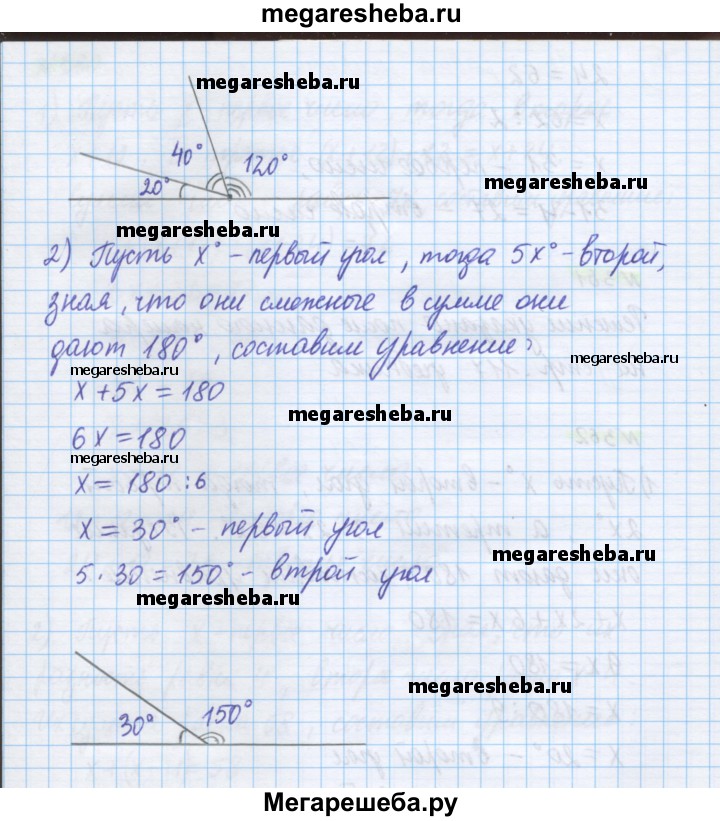 megaresheba.ru
megaresheba.ru
40° 120°
20°
megaresheba.ru
megaresheba.ru
2) Пусть x° - первый угол, тогда 5x° - второй,
зная, что они смежные в сумме они
дают 180°, составим уравнение:
megaresheba.ru
megaresheba.ru
x + 5x = 180
megaresheba.ru
6x = 180
megaresheba.ru
x = 180 : 6
x = 30° - первый угол
megaresheba.ru
5 · 30 = 150° - втрой угол
megaresheba.ru
megaresheba.ru
30° 150°
Мегарешеба.ру